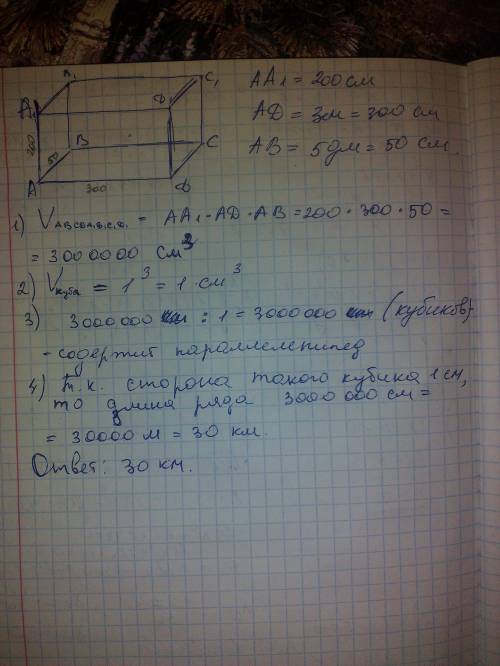 B₁
C₁
A₁
D₁
B
C
200
50
A
300
D
AA₁ = 200 см
AD = 3м = 300 см
AB = 5дм = 50 см.
1) V ABCDA₁B₁C₁D₁ = AA₁·AD·AB = 200·300·50 =
= 3000000 см³
2) Vкуба = 1³ = 1 см³
3) 3000000 : 1 = 3000000 (кубиков)
- содержит параллелепипед
4) Т.к. сторона такого кубика 1 см,
то длина ряда 3000 000 см =
= 30000 м = 30 км.
Ответ: 30 км.